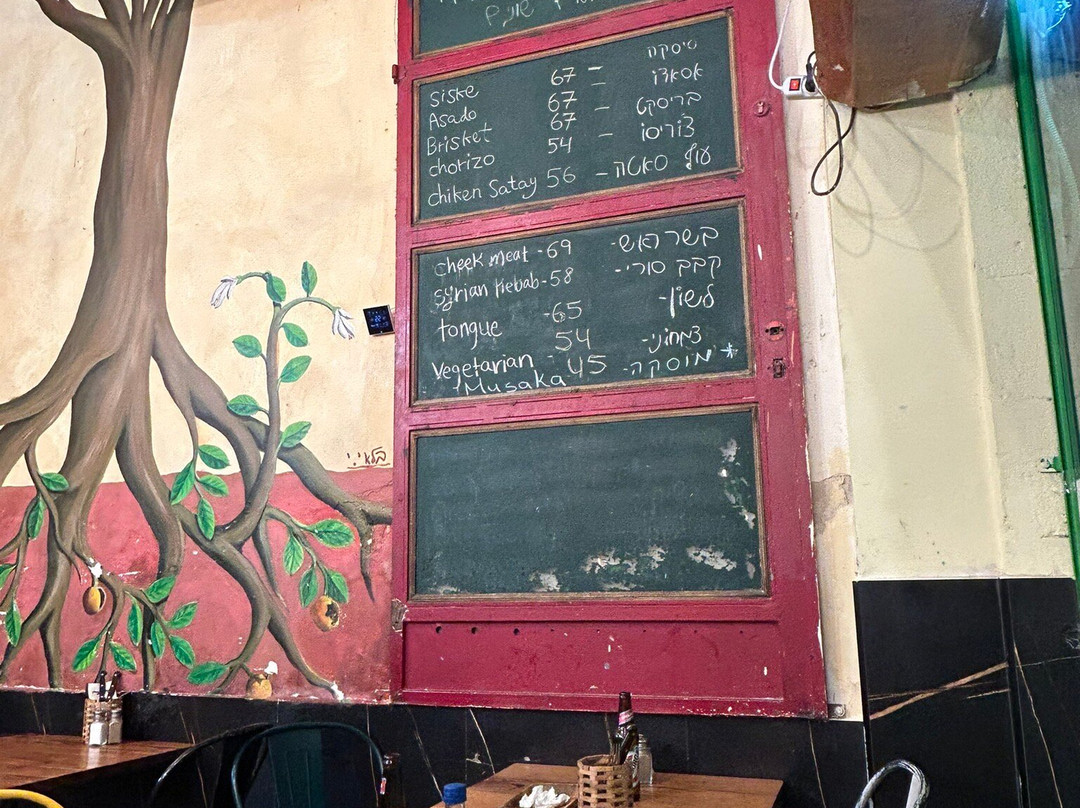 שונים
siske 67 - סיסקה
Asado 67 - אסאדו
Brisket 67 - בריסקט
chorizo 54 - צ'וריסו
chiken Satay 56 - עוף סאטה
cheek meat - 69 בשר ראש -
Syrian Kebab - 58 קבב סורי -
tongue - 65 לשון -
Vegetarian - 54 צמחוני -
Musaka 45 מוסקה -